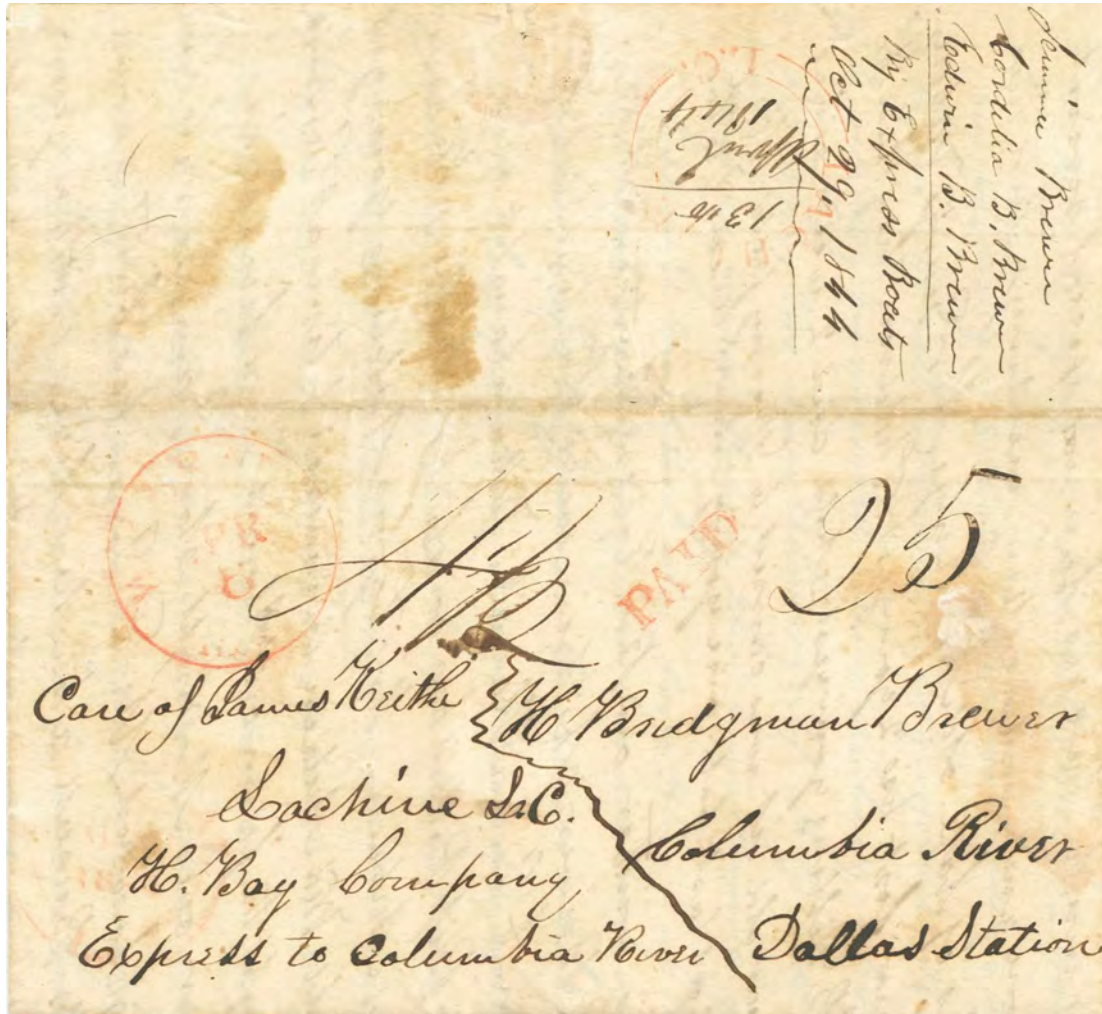 Brewer
Cordelia B. Brewer
Edwin B. Brewer
By Express Boats
Oct 29, 1844
L.C.
13th
April
1844
PAID
25
Care of James Keithe
Lachine L.C.
H. Bay Company
Express to Columbia River
H Bridgman Brewer
Columbia River
Dallas Station